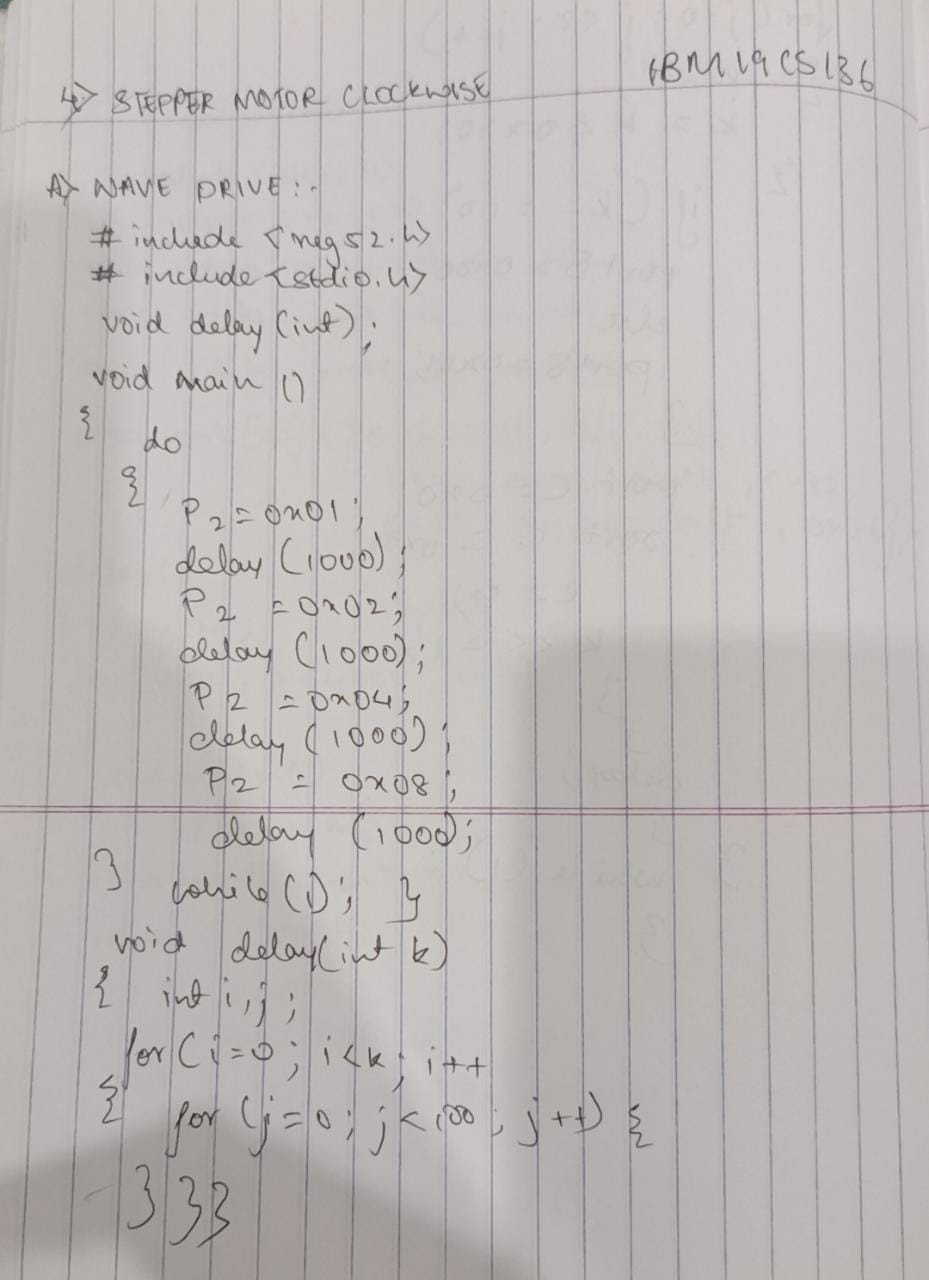 4> STEPPER MOTOR CLOCKWISE
1BM19CS136
A> WAVE DRIVE :-
# include <reg52.h>
# include <stdio.h>
void delay (int);
void main ()
{ do
{
P2 = 0x01;
delay (1000);
P2 = 0x02;
delay (1000);
P2 = 0x04;
delay (1000);
P2 = 0x08;
delay (1000);
} while (1); }
void delay(int k)
{ int i,j;
for (i=0; i<k; i++
{ for (j=0; j<100; j++) {
}}}